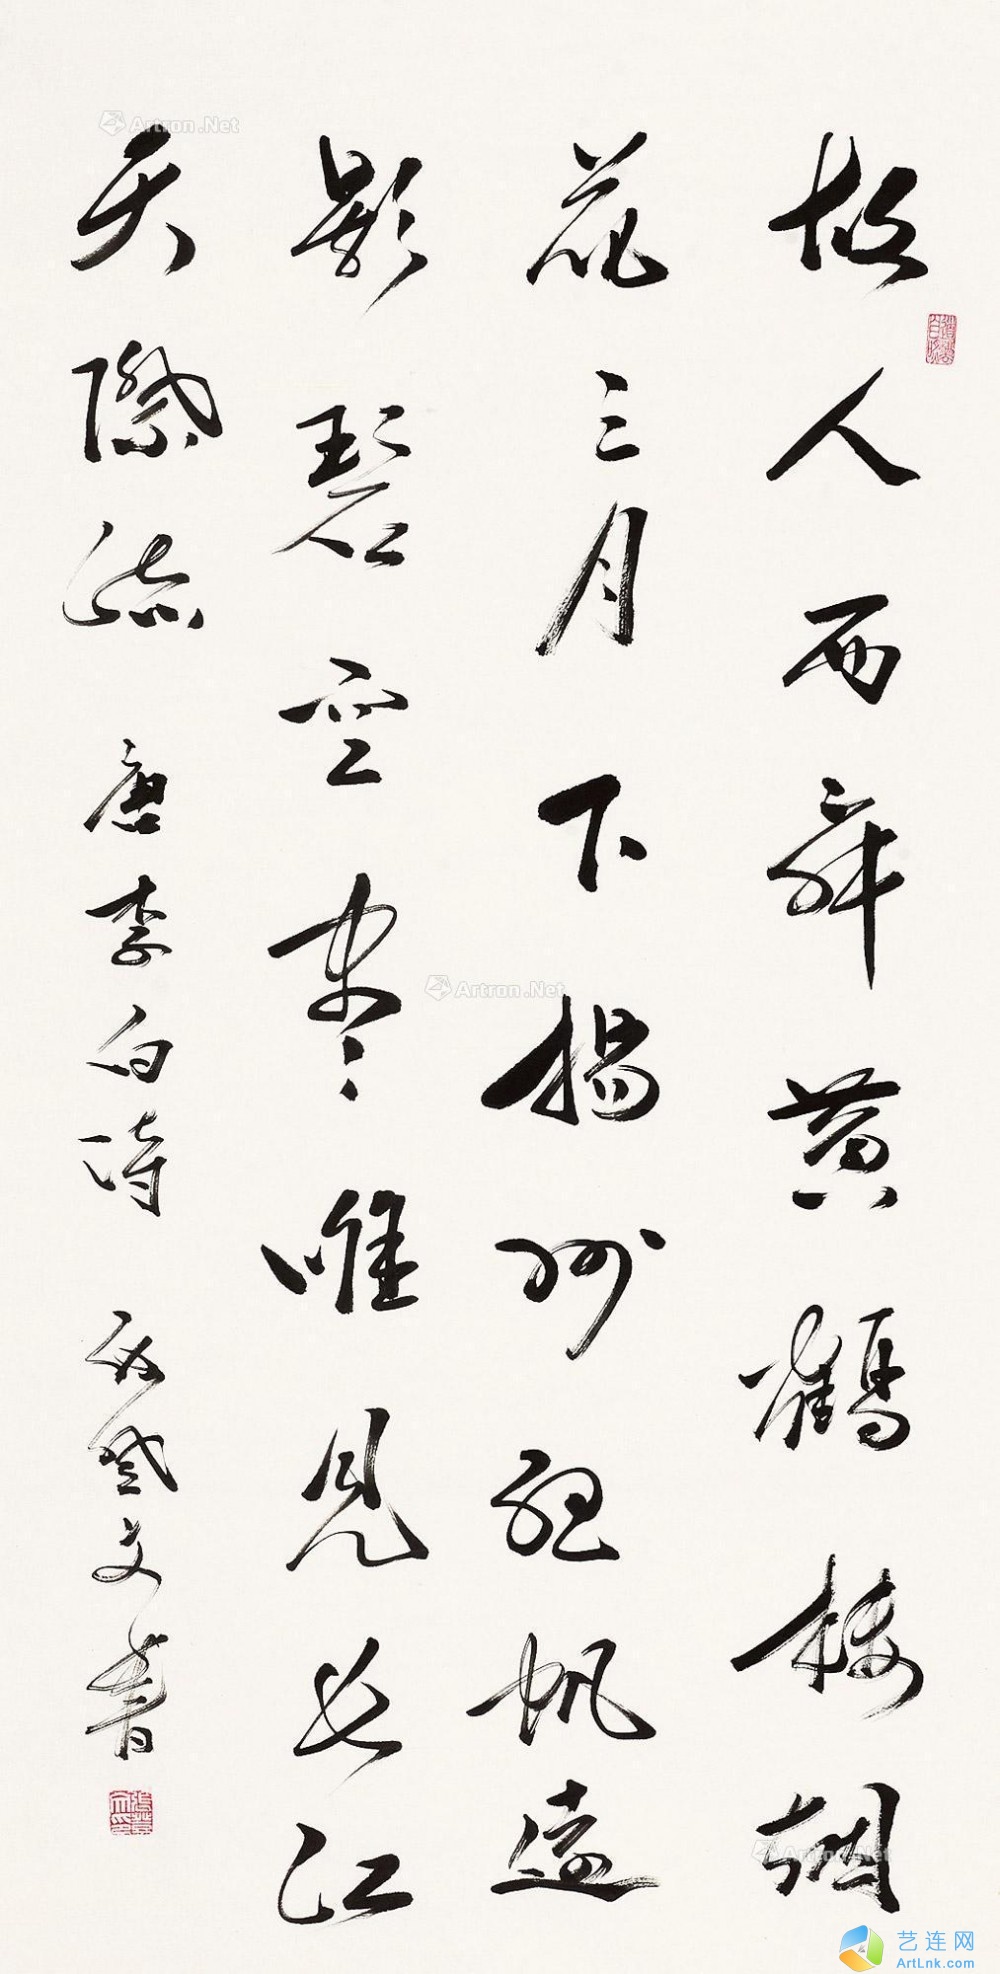 故人西辭黄鶴樓烟
花三月下揚州孤帆遠
影碧空盡唯見長江
天際流 唐李白詩 登文書
Artron.Net
Artron.Net
Artron.Net
艺连网
ArtLnk.com